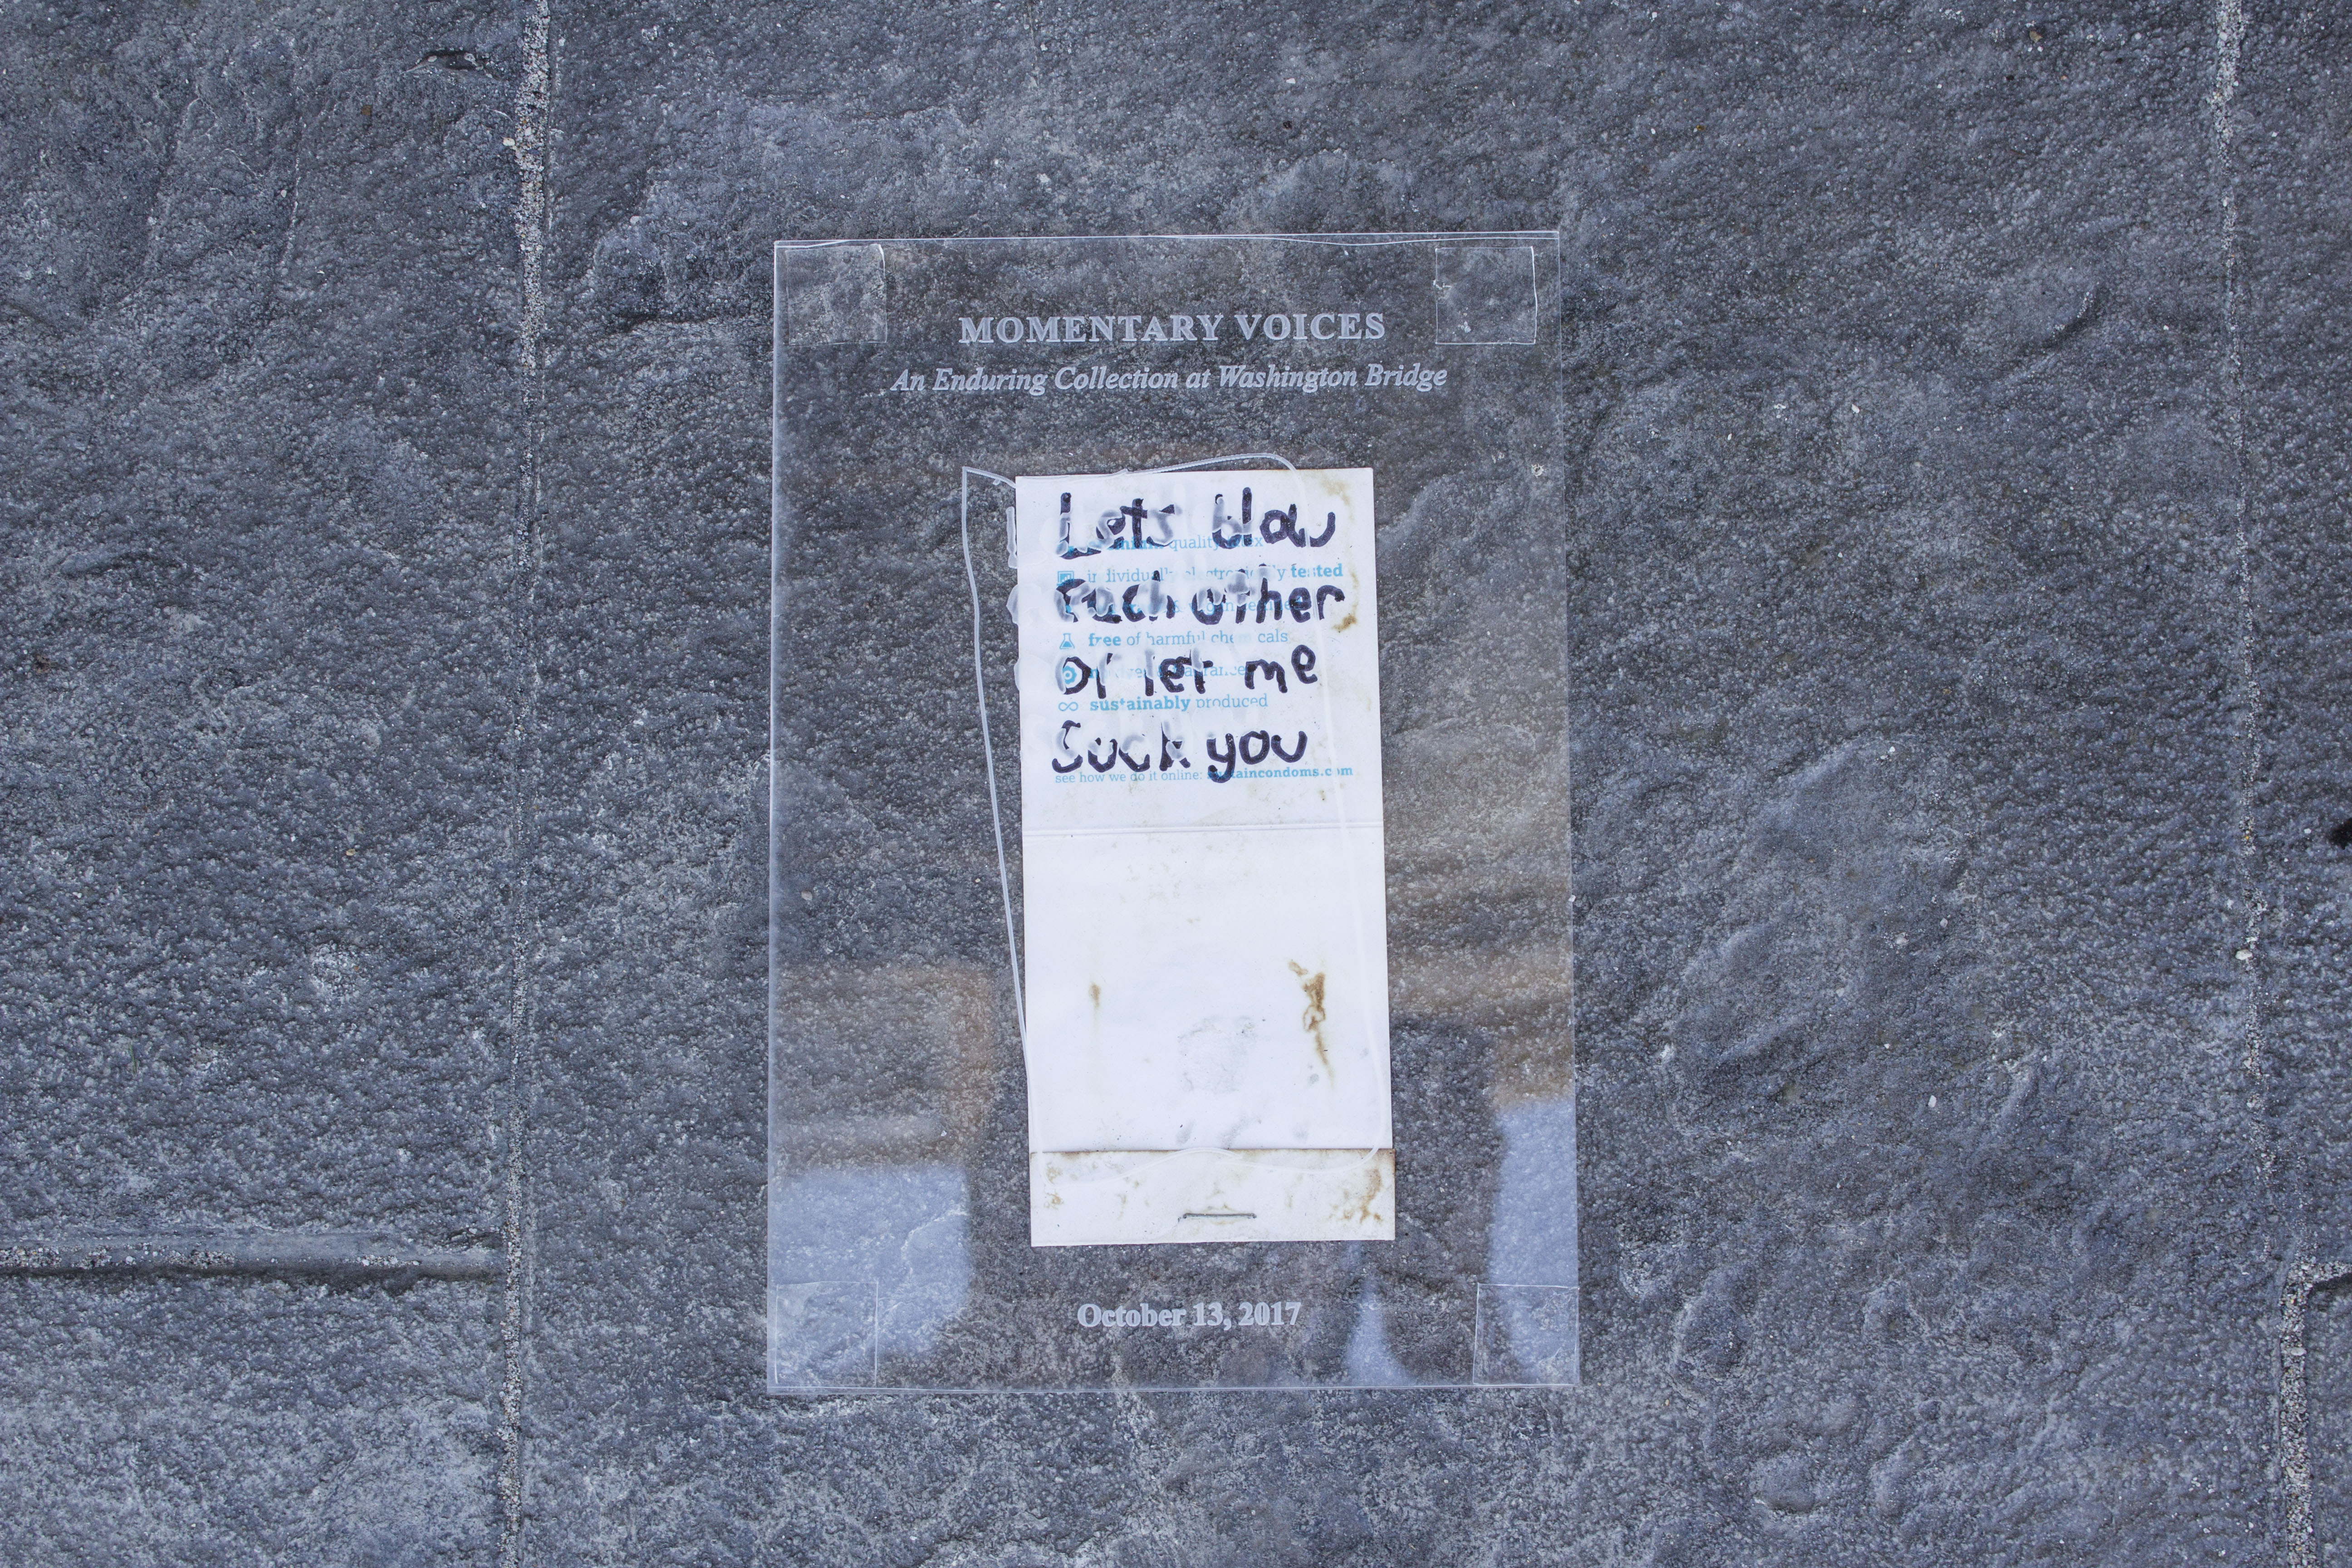 MOMENTARY VOICES
An Enduring Collection at Washington Bridge
Lets blow
quality latex
individually electronically tested
Each other
free of harmful chemicals
Or let me
sustainably produced
Suck you
see how we do it online: sustaincondoms.com
October 13, 2017